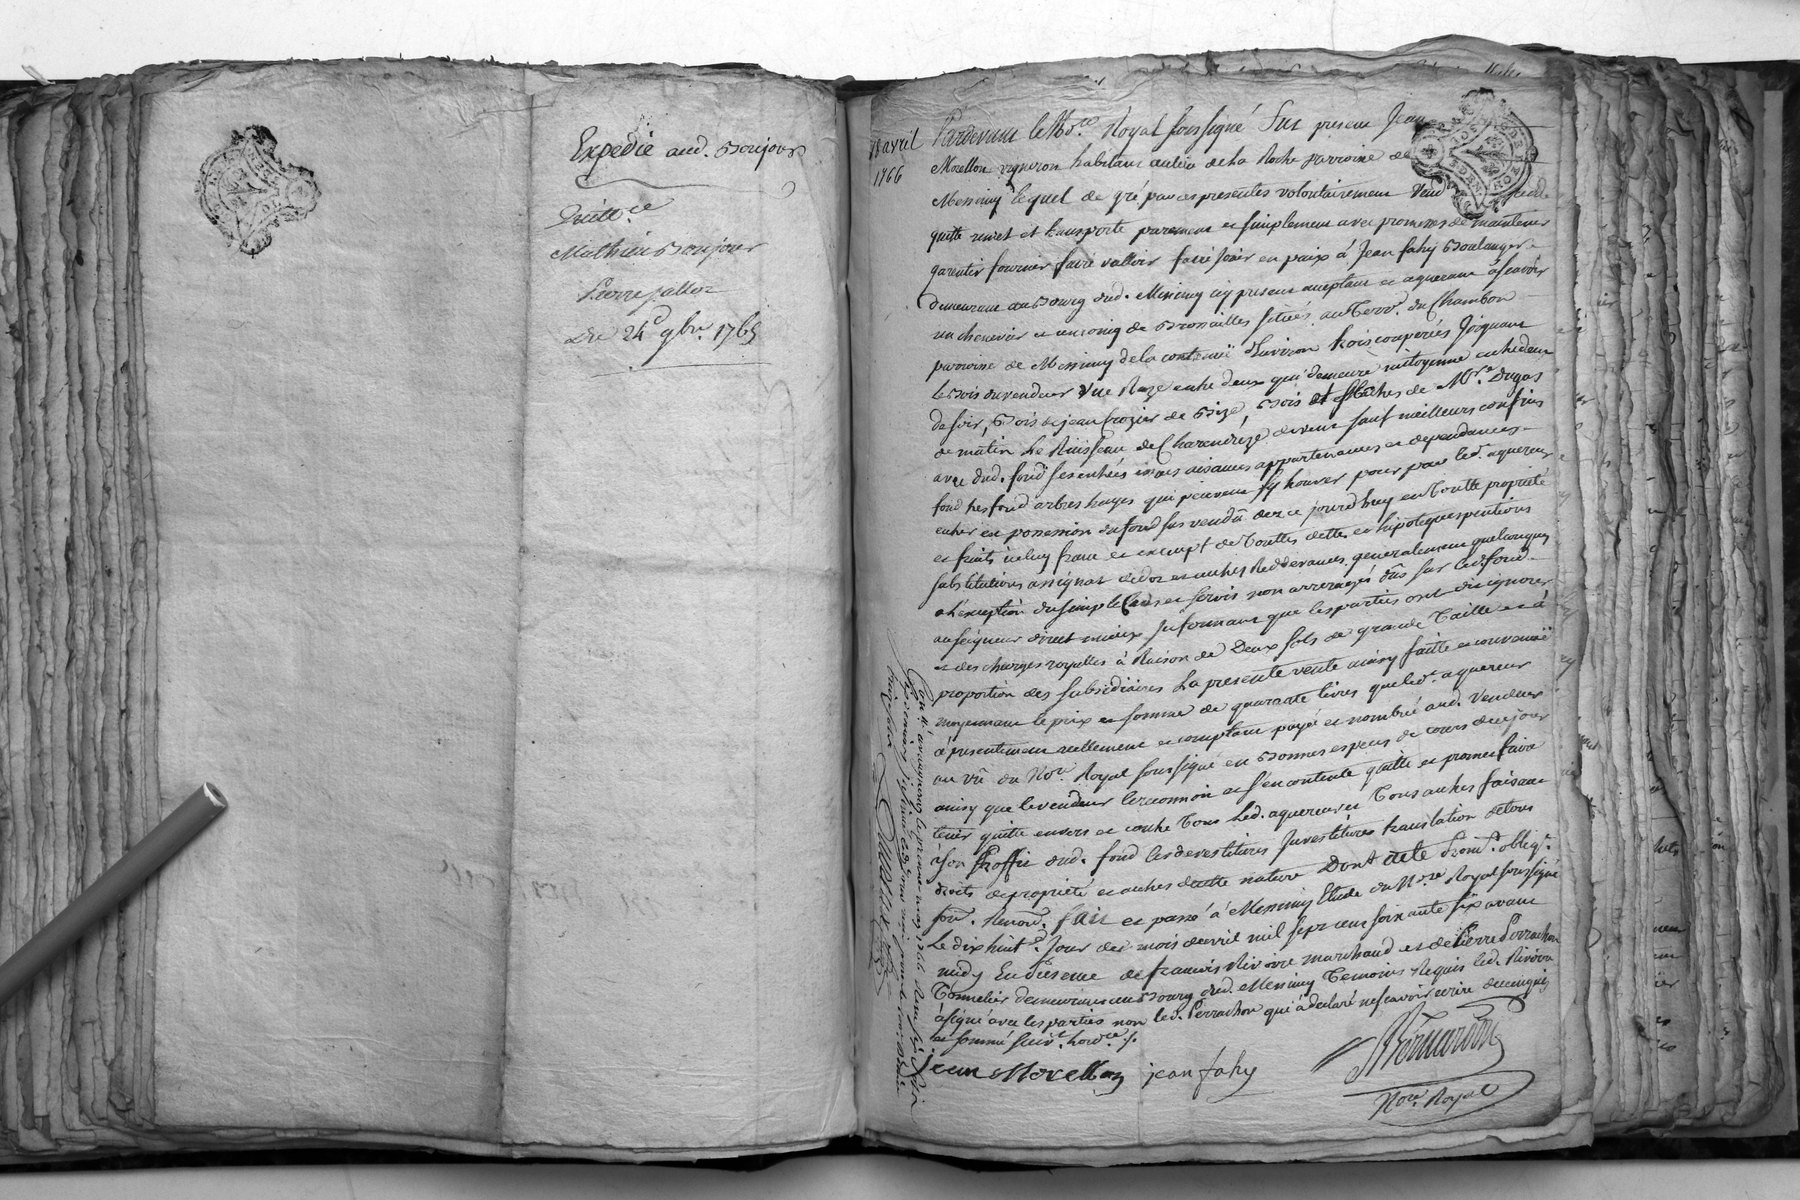 Expedié aud. Bonjour
Quitt.ce
Mathieu Bonjour
Pierre
du 24e 9bre 1765
18 avril
1766
Pardevant le No.re Royal soussigné fut present Jean
Morellon vigneron habitant au lieu de la Roche parroisse de
Messimy lequel de gré par ces presentes volontairement vend
quitte remet et transporte purement et simplement avec promesses de maintenir
garentir fournir faire valloir faire jouir en paix à Jean fahy Boulanger
demeurant au Bourg dud. Messimy icy present acceptant et aquereur à scavoir
un chenevier et un coing de Brossailles situés au Terr.e du Chambon
parroisse de Messimy de la contenuë d'environ trois couperées joignant
le Bois du vendeur une Raze entre deux qui demeure mitoyenne entre deux
de soir, Bois de jean Crozier de Bize, Bois et de Mr. Dugas
de matin Le Ruisseau de sauf meilleurs confins
avec dud. fond ses entrées issues aisances appartenances et dependances
fond tresfond arbres hayes qui peuvent s'y trouver pour par led. aquereur
entrer en possession du fond sus vendû dez ce jourd'huy en Toutte propriété
et fruits iceluy franc et exempt de Touttes dettes et hipoteques pentions
substitutions assignat de dot et autres Reddevances generalement quelconques
a l'exeption du simple Cens et servis non arreragés dûs sur led. fond
au seigneur direct mieux Informant que les parties ont dit ignorer
et des charges royalles à Raison de Deux sols de grande Taille et à
proportion des subsidiaires La presente vente ainsy faitte et convenuë
moyennant le prix et somme de quarante livres que led. aquereur
à presentement reellement et comptant payé et nombré aud. Vendeur
au vû du No.re Royal soussigné en Bonnes especes de cours de ce jour
ainsy que le vendeur le reconnoit et s'en contente quitte et promet faire
tenir quitte envers et contre Tous Led. aquereur et Tous autres faisant
à son Proffit dud. fond les devestitures Investitures translation de tous
droits de propriété et autres de cette nature Dont acte Prom.t oblig.t
so.nt Renon.t fait et passé à Messimy Etude du No.re Royal soussigné
Le dix huit.e Jour du mois d'avril mil sept cent soixante six avant
midy En presence de francois Rivoire marchand et de Pierre Perrachon
Tonnelier demeurants au Bourg dud. Messimy Temoins Requis led. Rivoire
à signé avec les parties non led. Perrachon qui à declaré ne scavoir ecrire de ce enquis
et sommé suiv.t l'ord.ce
jean Morellon jean fahy
Bernardin
No.re Royal